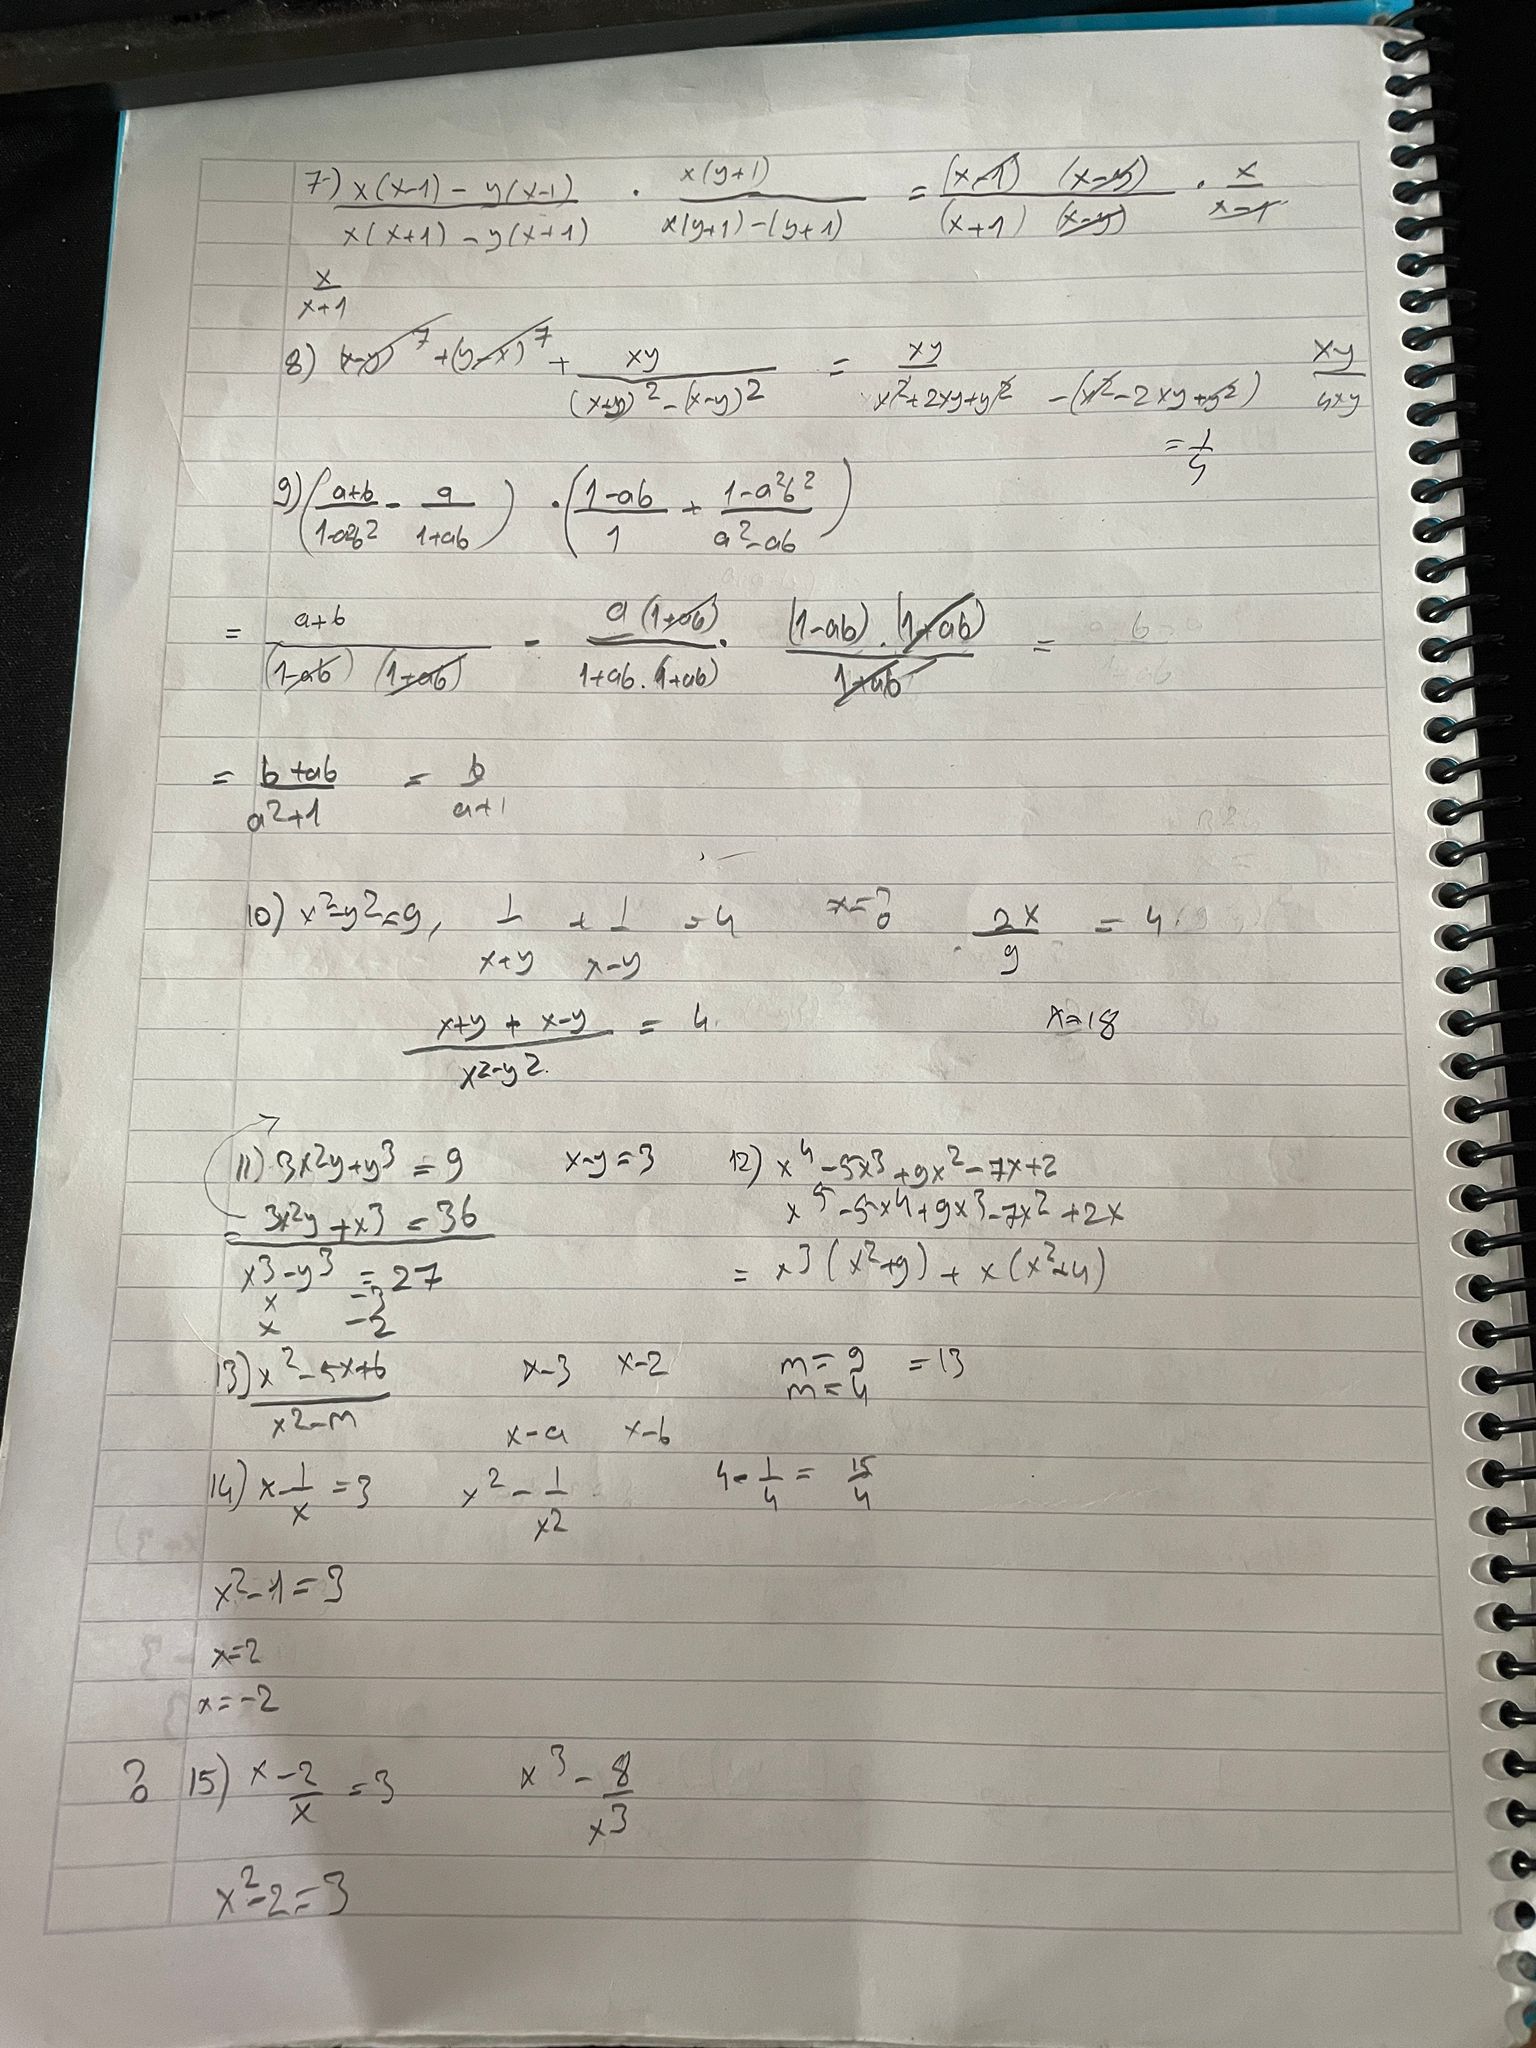 7) x(x-1) - y(x-1) / x(x+1) - y(x+1) . x(y+1) / x(y+1) - (y+1) = (x-1) (x-y) / (x+1) (x-y) . x / x-1
x / x+1
8) (x-y)^7 + (y-x)^7 + xy / (x+y)^2 - (x-y)^2 = xy / x^2+2xy+y^2 - (x^2-2xy+y^2) xy / 4xy
= 1/4
9) (a+b / 1-a^2b^2 - a / 1+ab) . (1-ab / 1 + 1-a^2b^2 / a^2-ab)
= a+b / (1-ab) (1+ab) - a(1+ab) / 1+ab.(1+ab) . (1-ab).(1+ab) / 1+ab =
= b+ab / a^2+1 = b / a+1
10) x^2-y^2=9, 1 / x+y + 1 / x-y = 4 x=? 2x / 9 = 4
x+y + x-y / x^2-y^2. = 4 x=18
11) 3x^2y+y^3 = 9 x-y=3 12) x^4-5x^3+9x^2-7x+2
= 3x^2y+x^3 = 36 x^5-5x^4+9x^3-7x^2+2x
x^3-y^3 = 27 = x^3(x^2+9) + x(x^2+4)
x -3
x -2
13) x^2-5x+6 / x^2-m x-3 x-2 m=9 = 13
m=4
x-a x-b
14) x-1/x = 3 x^2 - 1/x^2 4-1/4 = 15/4
x^2-1=3
x=2
x=-2
? 15) x-2/x = 3 x^3 - 8/x^3
x^2-2=3